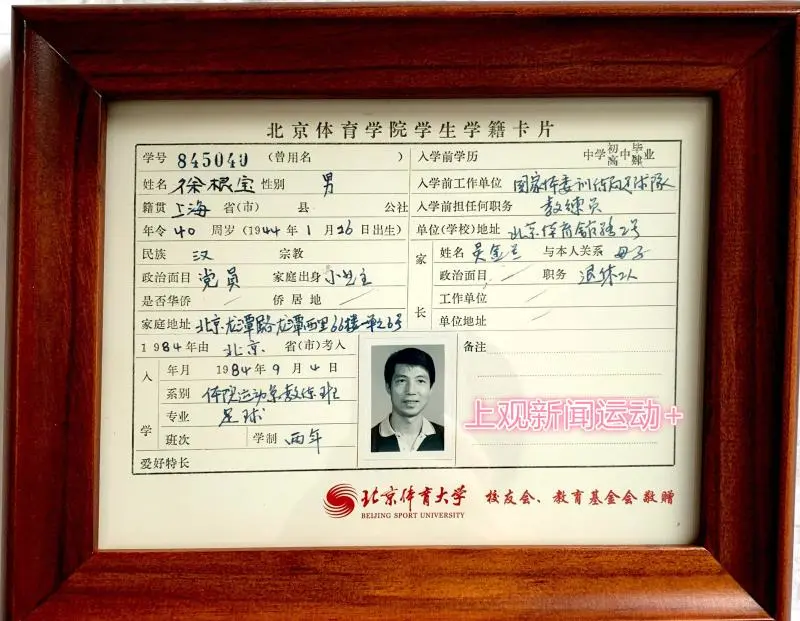 北京体育学院学生学籍卡片
学号 845049 (曾用名 )
入学前学历 中学初高中毕肄业
姓名 徐根宝 性别 男
入学前工作单位 国家体委训练局足球队
籍贯 上海 省(市) 县 公社
入学前担任何职务 教练员
年令 40 周岁 (1944年1月26日出生)
单位(学校)地址 北京体育馆路2号
民族 汉 宗教
家长 姓名 吴金兰 与本人关系 母子
政治面目 党员 家庭出身 小业主
政治面目 / 职务 退休工人
是否华侨 / 侨居地 /
工作单位 /
家庭地址 北京龙潭路龙潭西里66楼一单元6号
单位地址 /
1984年由 北京 省(市)考入
备注
入学 年月 1984年9月4日
系别 体院运动系教练班
专业 足球
班次 学制 两年
爱好特长
上观新闻运动+
北京体育大学 校友会、教育基金会敬赠
BEIJING SPORT UNIVERSITY